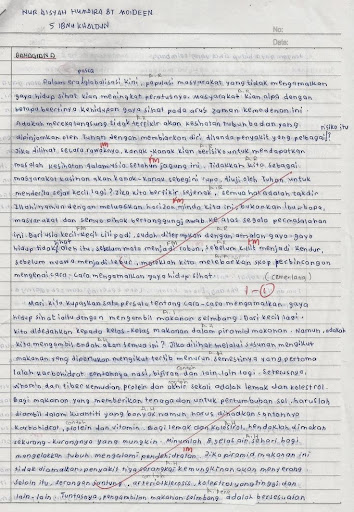 NUR AISYAH HUMAIRA BT MOIDEEN
5 IBNU KHALDUN
No:
Date:
BAHAGIAN A
Dalam era globalisasi kini, populasi masyarakat yang tidak mengamalkan
gaya hidup sihat kian meningkat peratusnya. Masyarakat kian alpa dengan
betapa pentingnya kehidupan gaya sihat pada arus zaman kemodenan ini.
Adakah mereka langsung tidak terfikir akan kesihatan tubuh badan yang
dipinjamkan oleh Tuhan dengan membiarkan diri dilanda penyakit yang pelbagai?
Jika dilihat secara rawaknya, kanak-kanak kian berisiko untuk mendapatkan
masalah kesihatan galamusia setahun jagung ini. Tidakkah kita sebagai
masyarakat kasihan akan kanak-kanak sebegini rupa, diuji oleh Tuhan untuk
menderita sejak kecil lagi? Jika kita berfikir sejenak, semua hal adalah takdir
Ilahi
masyarakat dan semua pihak bertanggungjawab ke atas segala permasalahan
ini. Dari usia kecil-kecil cili padi, sudah diterapkan dengan amalan gaya-gaya
hidup tidak sihat oleh itu, sebelum mata menjadi rabun, sebelum kulit menjadi kendur,
sebelum nyawa menjadi sebut, marilah kita melebarkan skop perbincangan
mengenai cara-cara mengamalkan gaya hidup sihat.
(cemerlang)
1-1
Mari kita kupaskan satu persatu tentang cara-cara mengamalkan gaya
hidup sihat iaitu dengan mengambil makanan seimbang. Dari kecil lagi,
kita didedahkan kepada kelas-kelas makanan dalam piramid makanan. Namun, adakah
kita mengambil endah akan semua ini? Jika dilihat melalui susunan mengikut
makanan yang diperlukan mengikut tertib menurun senarainya yang pertama
ialah karbohidrat contohnya nasi, bijiran dan lain-lain lagi. Seterusnya,
vitamin dan fiber kemudian protein dan akhir sekali adalah lemak dan kolestrol.
Bagi makanan yang memberikan tenaga dan untuk pertumbuhan sel, haruslah
diambil dalam kuantiti yang banyak namun harus dihadkan contohnya
karbohidrat, protein dan vitamin. Bagi lemak dan kolestrol, hendaklah dimakan
sekurang-kurangnya yang mungkin. Minumlah 8 gelas air sehari bagi
mengelakkan tubuh mengalami pendehidratan. Jika piramid makanan ini
tidak diamalkan, penyakit tiga serangkai kemungkinan akan menyerang.
Selain itu, serangan jantung, arteriosklerosis, kolestrol yang tinggi dan
lain-lain. Tuntasnya, pengambilan makanan seimbang adalah bersesuaian